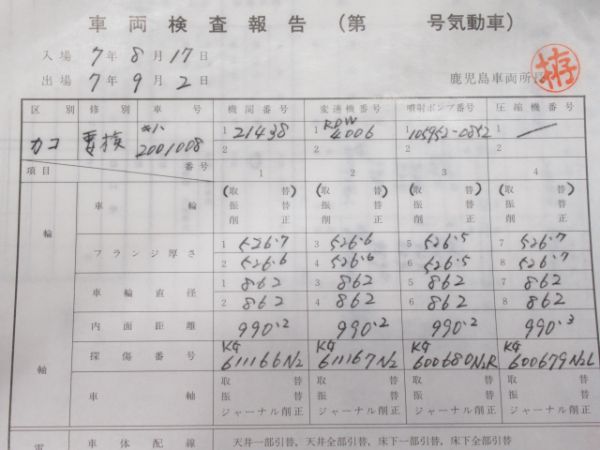 車両検査報告（第　　号気動車）
入場 7年8月17日
出場 7年9月2日
鹿児島車両所長
区別 修別 車号 機関番号 変速機番号 噴射ポンプ番号 圧縮機番号
カコ 要検 キハ 2001008 1 21438 1 RDW 4006 1 105952-0812 1
2 2 2 2
項目 番号 1 2 3 4
輪軸
車輪 （取替） （取替） （取替） （取替）
振替 振替 振替 振替
削正 削正 削正 削正
フランジ厚さ 1 526.7 3 526.6 5 526.5 7 526.7
2 526.6 4 526.6 6 526.5 8 526.7
車輪直径 1 862 3 862 5 862 7 862
2 862 4 862 6 862 8 862
内面距離 990.2 990.2 990.2 990.3
探傷番号 KG 611166N2 KG 611167N2 KG 600680N2R KG 600679N2L
車軸 取替 取替 取替 取替
振替 振替 振替 振替
ジャーナル削正 ジャーナル削正 ジャーナル削正 ジャーナル削正
車体配線 天井一部引替、天井全部引替、床下一部引替、床下全部引替